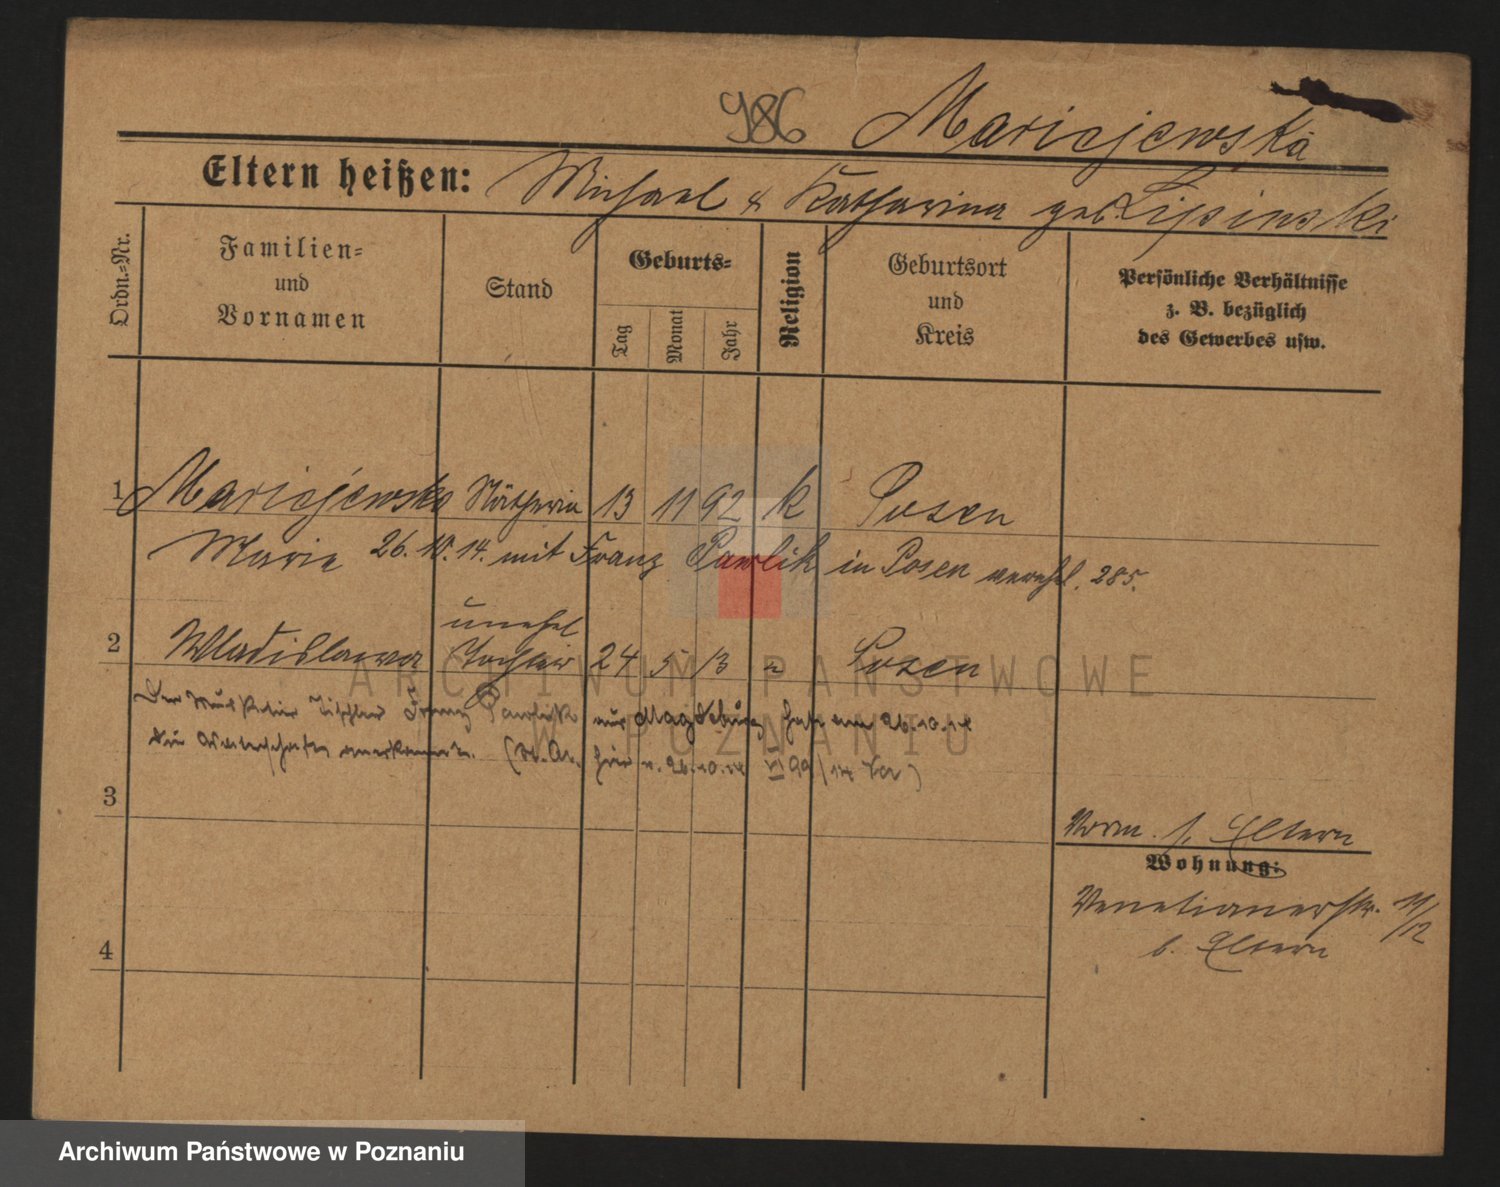 986 Mariejewska
Eltern heißen: Michael & Katharina geb. Lipinski
Ordn.=Nr.
Familien=
und
Vornamen
Stand
Geburts=
Tag
Monat
Jahr
Religion
Geburtsort
und
Kreis
Persönliche Verhältnisse
z. B. bezüglich
des Gewerbes usw.
1 Mariejewska Nätherin 13 11 92 k Posen
Marie 26. 10. 14. mit Franz Pawlik in Posen verehel. 285.
unehel
2 Wladislawa Tochter 24 5 13 " Posen
ARCHIWUM PAŃSTWOWE
W POZNANIU
Der Musketier Tischler Franz Pawlik aus Magdeburg hat am 26.10.14
die Vaterschaft anerkannt. (St. A. hier v. 26.10.14 VI 99/14
3
Vorm. s. Eltern
Wohnung:
Venetianerstr. 11/12
b. Eltern
4
Archiwum Państwowe w Poznaniu